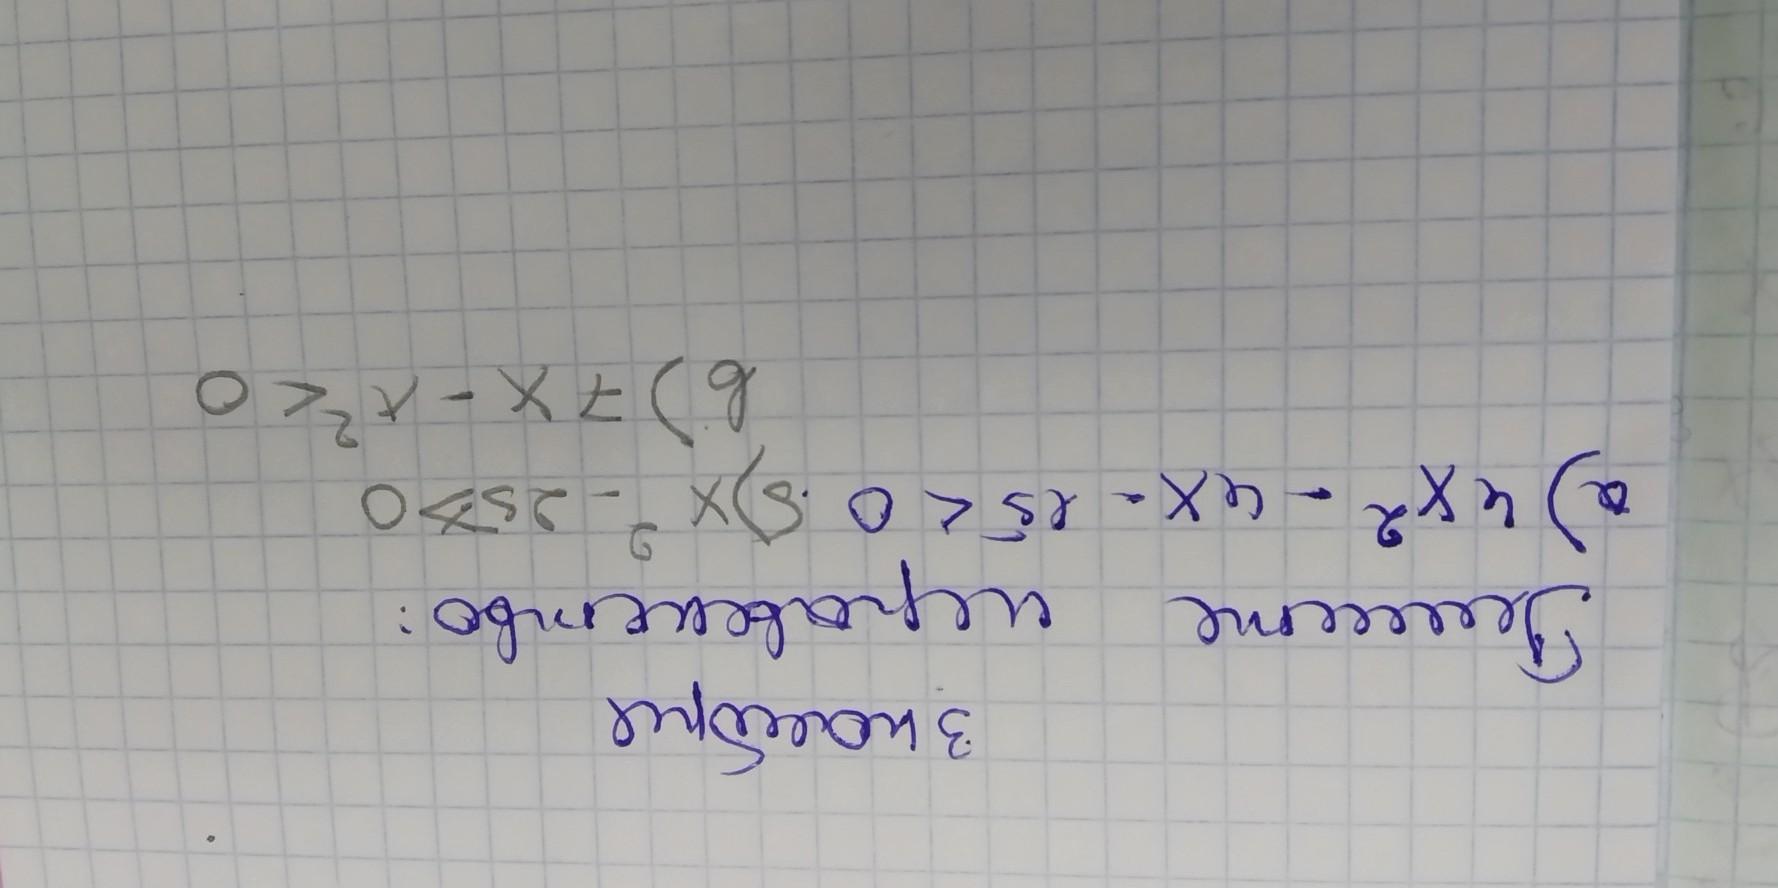 3 ноября
Решите неравенство:
а) 4x² - 4x - 15 < 0 б) x² - 25 > 0
в) 7x - x² < 0